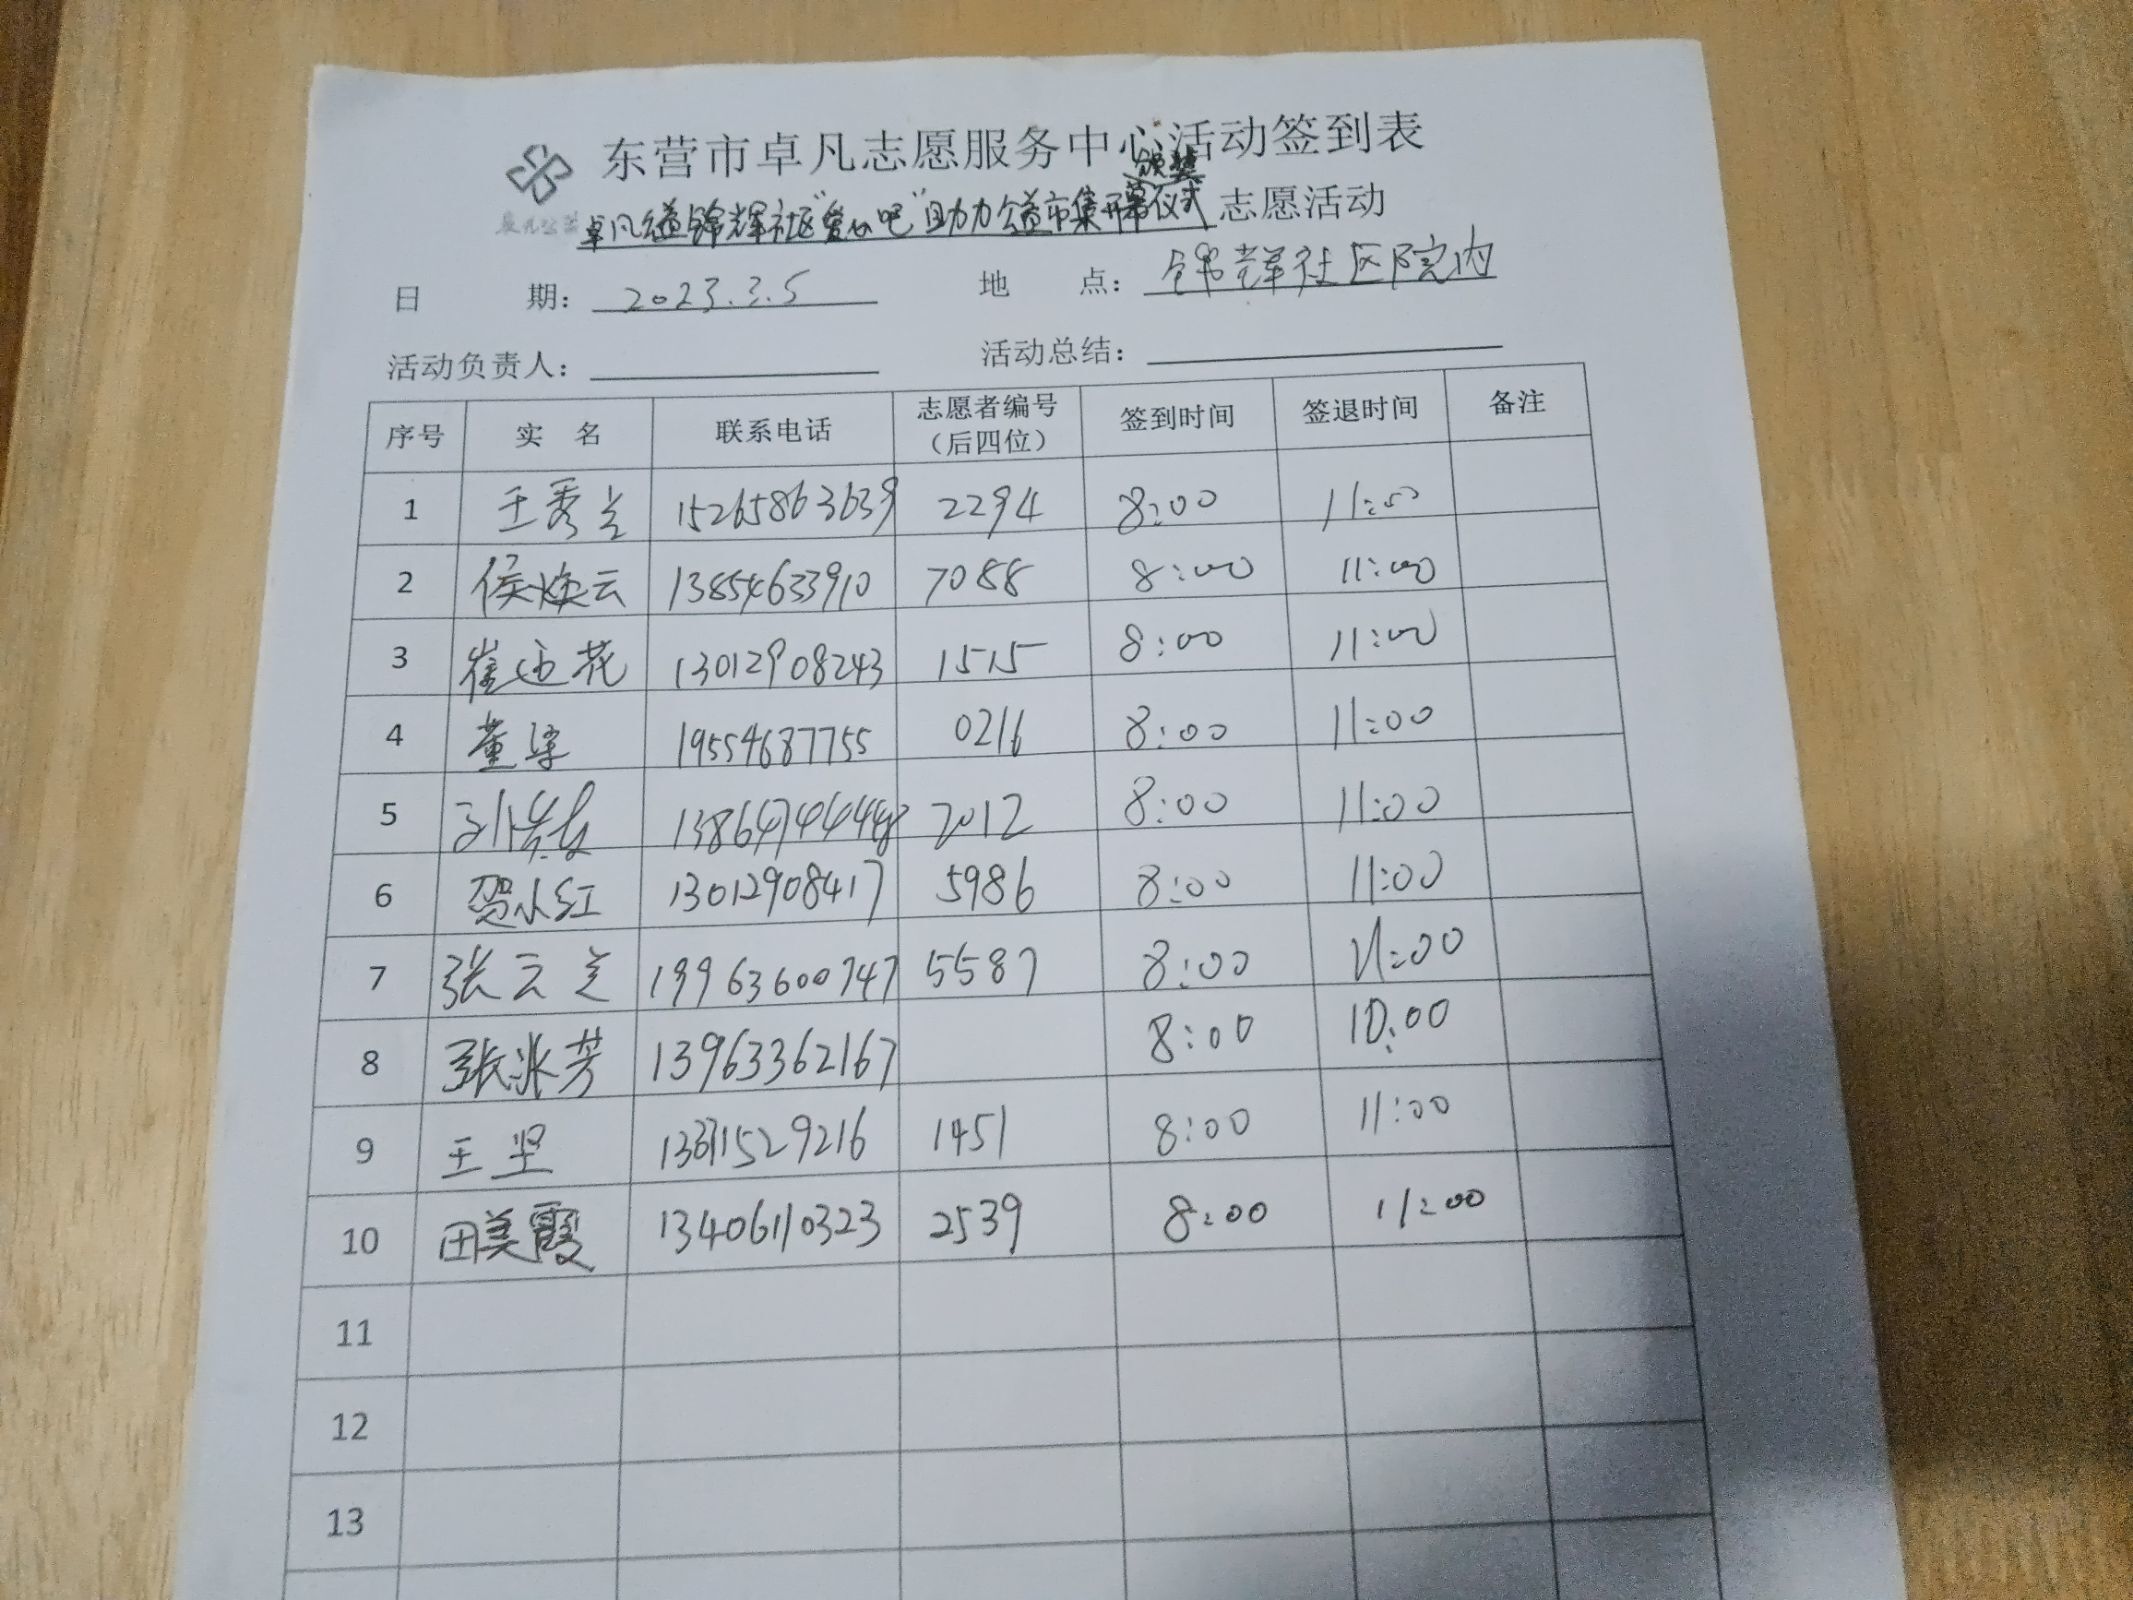 东营市卓凡志愿服务中心活动签到表
颁奖
卓凡公益锦辉社区"爱心吧"助力公益市集开幕仪式志愿活动
卓凡公益
日期：2023.3.5 地点：锦辉社区院内
活动负责人： 活动总结：
序号 实名 联系电话 志愿者编号（后四位） 签到时间 签退时间 备注
1 王秀兰 15265863639 2294 8:00 11:00
2 侯焕云 13854633910 7088 8:00 11:00
3 崔迎花 13012908243 1515 8:00 11:00
4 董梁 19554687755 0216 8:00 11:00
5 2012 8:00 11:00
6 贺小红 13012908417 5986 8:00 11:00
7 张云兰 19963600747 5587 8:00 11:00
8 张冰芳 13963362167 8:00 10:00
9 王坚 1451 8:00 11:00
10 田美霞 13406110323 2539 8:00 11:00
11
12
13